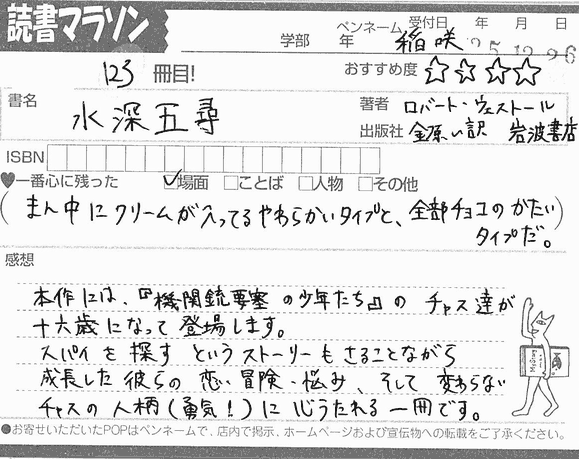 読書マラソン
学部 年 ペンネーム 稲咲 受付日 年 月 日
25.12.26
123 冊目!
おすすめ度 ☆☆☆☆
書名 水深五尋
著者 ロバート・ウェストール
出版社 金原い訳 岩波書店
ISBN
♥一番心に残った ☑場面 □ことば □人物 □その他
(まん中にクリームが入ってるやわらかいタイプと、全部チョコのかたい)
タイプだ。
感想
本作には、『機関銃要塞の少年たち』の チャス達が
十六歳になって登場します。
スパイを探すというストーリーもさることながら
成長した彼らの恋・冒険・悩み、そして変わらない
チャスの人柄(勇気!)に心うたれる一冊です。
●お寄せいただいたPOPはペンネームで、店内で掲示、ホームページおよび宣伝物への転載をご了承ください。